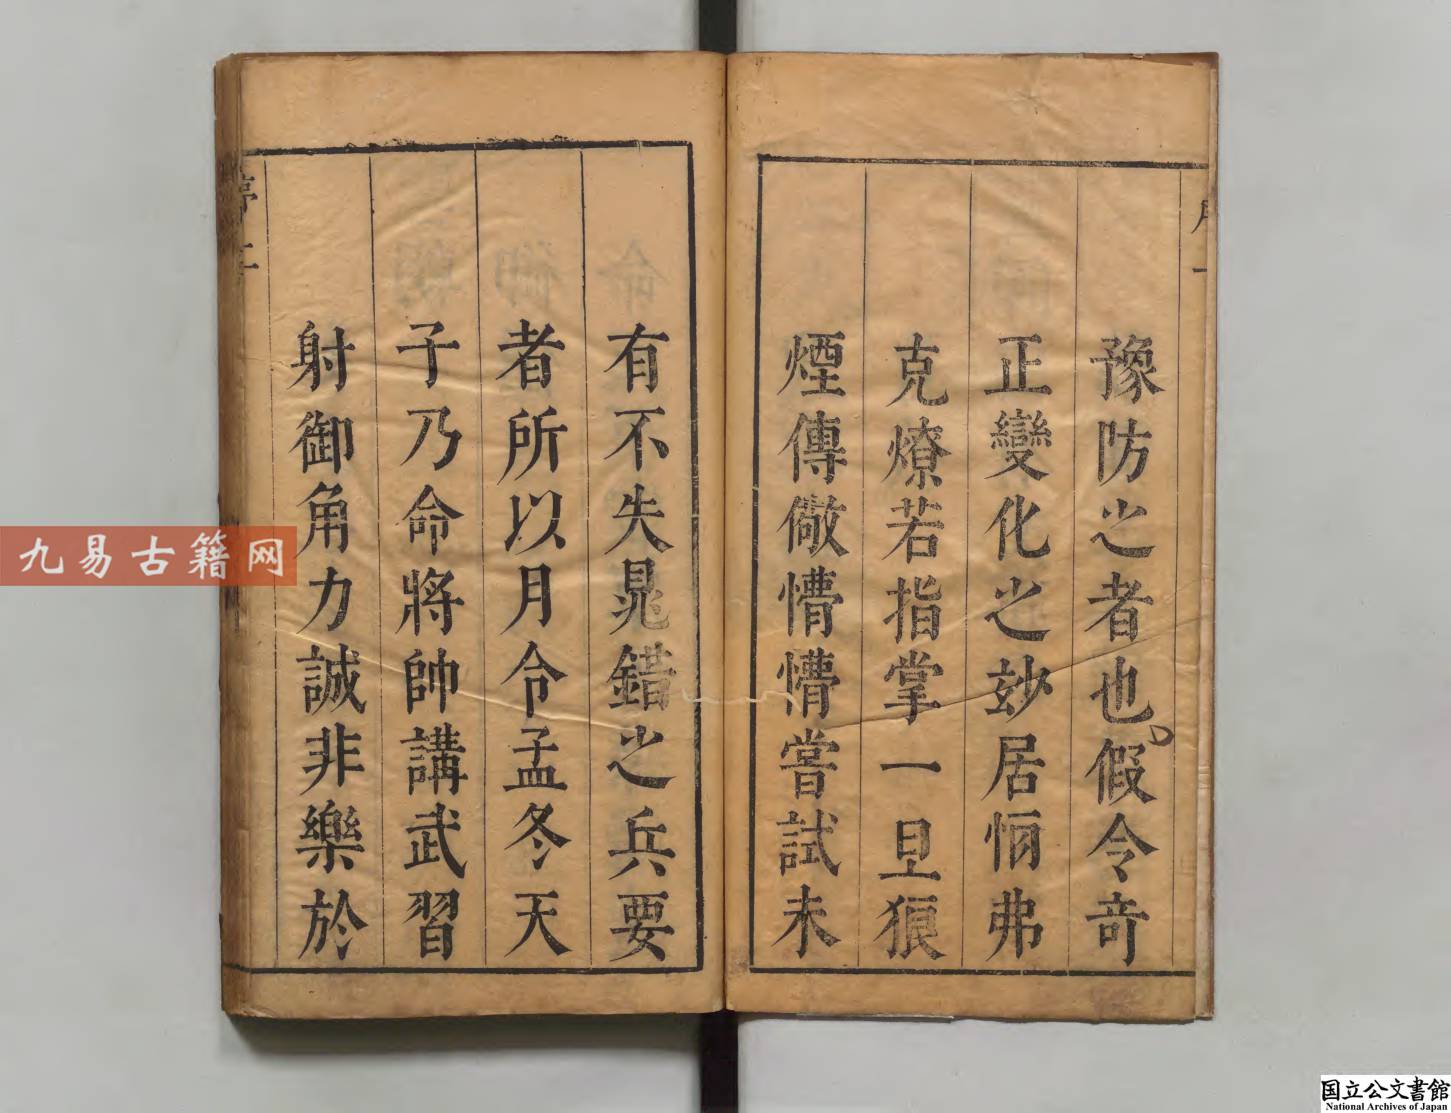 豫防之者也假令奇
正變化之妙居恆弗
克燎若指掌一旦狼
煙傳儆懵懵嘗試未
有不失晁錯之兵要
者所以月令孟冬天
子乃命將帥講武習
射御角力誠非樂於
九易古籍网
国立公文書館
National Archives of Japan